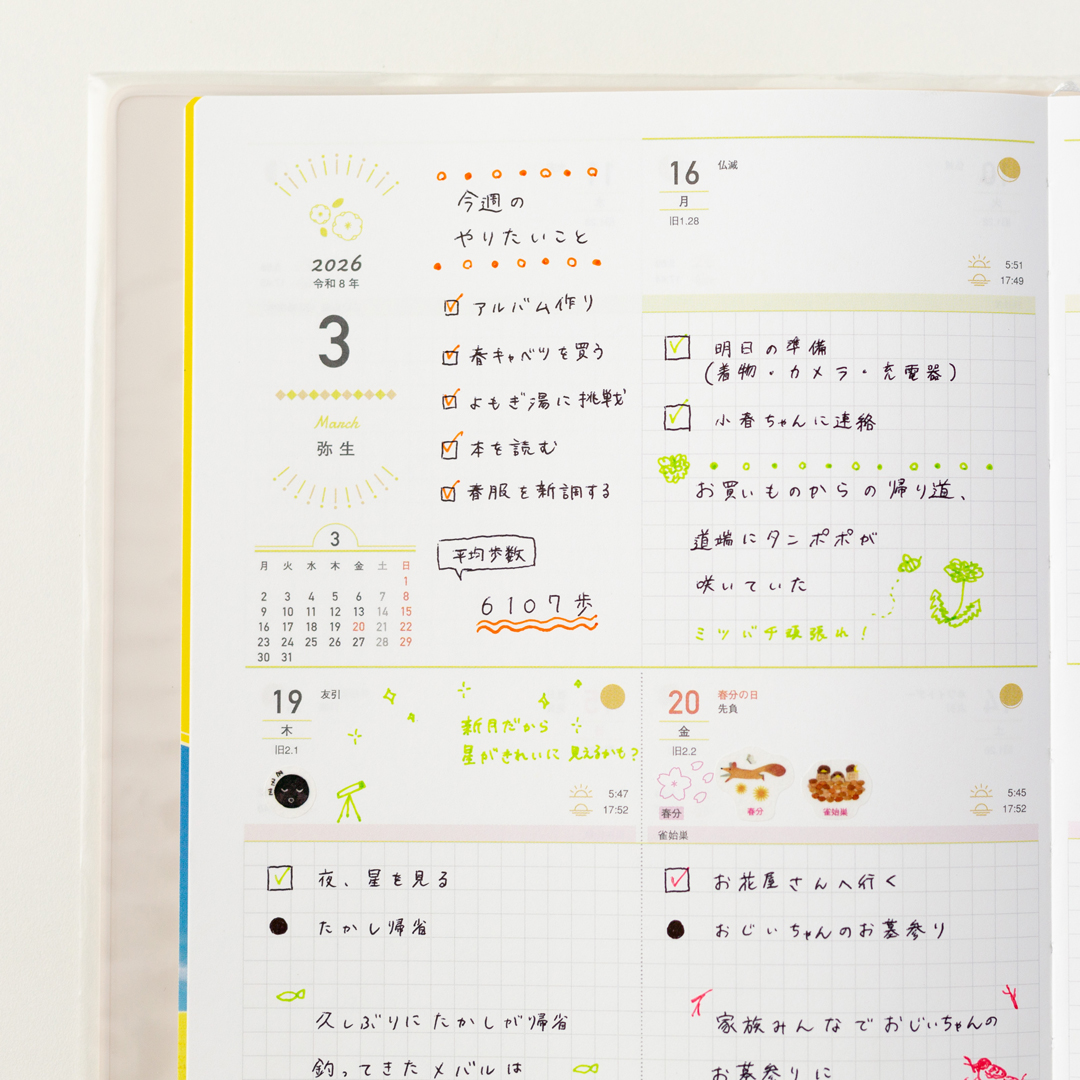 2026
令和8年
3
March
弥生
3
月 火 水 木 金 土 日
1
2 3 4 5 6 7 8
9 10 11 12 13 14 15
16 17 18 19 20 21 22
23 24 25 26 27 28 29
30 31
今週の
やりたいこと
アルバム作り
春キャベツを買う
よもぎ湯に挑戦
本を読む
春服を新調する
平均歩数
6107歩
16
仏滅
月
旧1.28
5:51
17:49
明日の準備
(着物・カメラ・充電器)
小春ちゃんに連絡
お買いものからの帰り道、
道端にタンポポが
咲いていた
ミツバチ頑張れ!
19
友引
木
旧2.1
新月だから
星がきれいに見えるかも?
5:47
17:52
夜、星を見る
たかし帰省
久しぶりにたかしが帰省
釣ってきたメバルは
20
春分の日
先負
金
旧2.2
春分
春分
雀始巣
5:45
17:52
雀始巣
お花屋さんへ行く
おじいちゃんのお墓参り
家族みんなでおじいちゃんの
お墓参りに